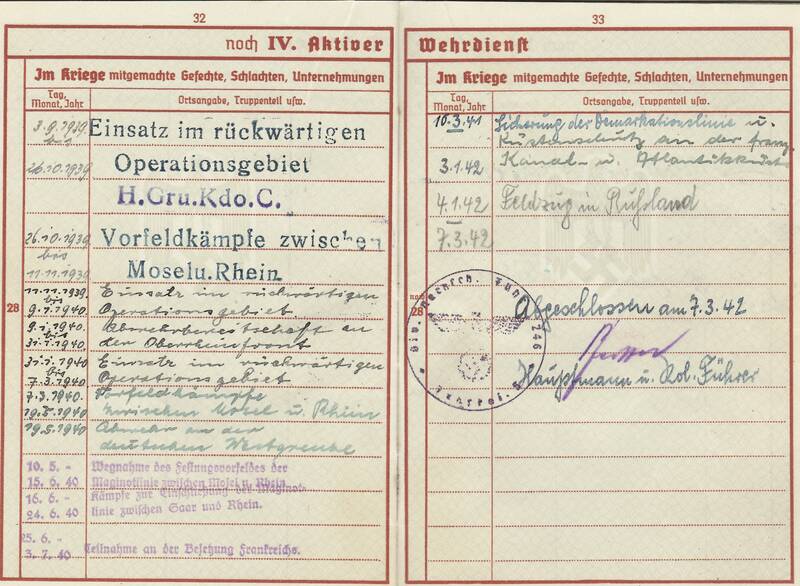 32
noch IV. Aktiver
Im Kriege mitgemachte Gefechte, Schlachten, Unternehmungen
Tag, Monat, Jahr
Ortsangabe, Truppenteil usw.
3.9.1939 bis
Einsatz im rückwärtigen
26.10.1939
Operationsgebiet
H.Gru.Kdo.C.
26.10.1939
Vorfeldkämpfe zwischen
bis
11.11.1939
Mosel u. Rhein
28
11.11.1939 bis
Einsatz im rückwärtigen
9.1.1940
Operationsgebiet.
9.1.1940 bis
Abwehrbereitschaft an
31.1.1940
der Oberrheinfront
31.1.1940 bis
Einsatz im rückwärtigen
7.3.1940
Operationsgebiet
7.3.1940
Vorfeldkämpfe
19.5.1940
zwischen Mosel u. Rhein
19.5.1940
Abwehr an der
deutschen Westgrenze
10. 5. -
Wegnahme des Festungsvorfeldes der
15. 6. 40
Maginotlinie zwischen Mosel u. Rhein.
16. 6. -
Kämpfe zur Einschließung der Maginot-
24. 6. 40
linie zwischen Saar und Rhein.
25. 6 -
3. 7. 40
Teilnahme an der Besetzung Frankreichs.
33
Wehrdienst
Im Kriege mitgemachte Gefechte, Schlachten, Unternehmungen
Tag, Monat, Jahr
Ortsangabe, Truppenteil usw.
10.3.41
Sicherung der Demarkationslinie u.
Küstenschutz an der franz.
3.1.42
Kanal- u. Atlantikküste
4.1.42
Feldzug in Rußland
7.3.42
noch
28
Abgeschlossen am 7.3.42
Hauptmann u. Kol. Führer
246